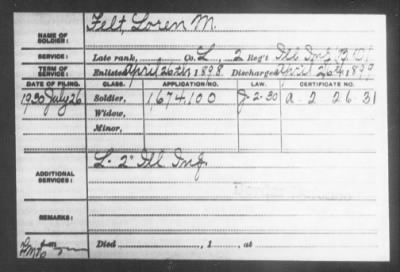 Felt, Loren M.
NAME OF SOLDIER:
SERVICE: Late rank, Co. L, 2 Reg't Ill Inf
TERM OF SERVICE: Enlisted April 26th 1898 Discharged April 26th 1899
DATE OF FILING. CLASS. APPLICATION NO. LAW. CERTIFICATE NO.
1930 July 26 Soldier, 1,674,100 J-2-30 A 2 26 31
Widow,
Minor,
L. 2" Ill Inf
ADDITIONAL SERVICES:
REMARKS:
Died , 1 , at